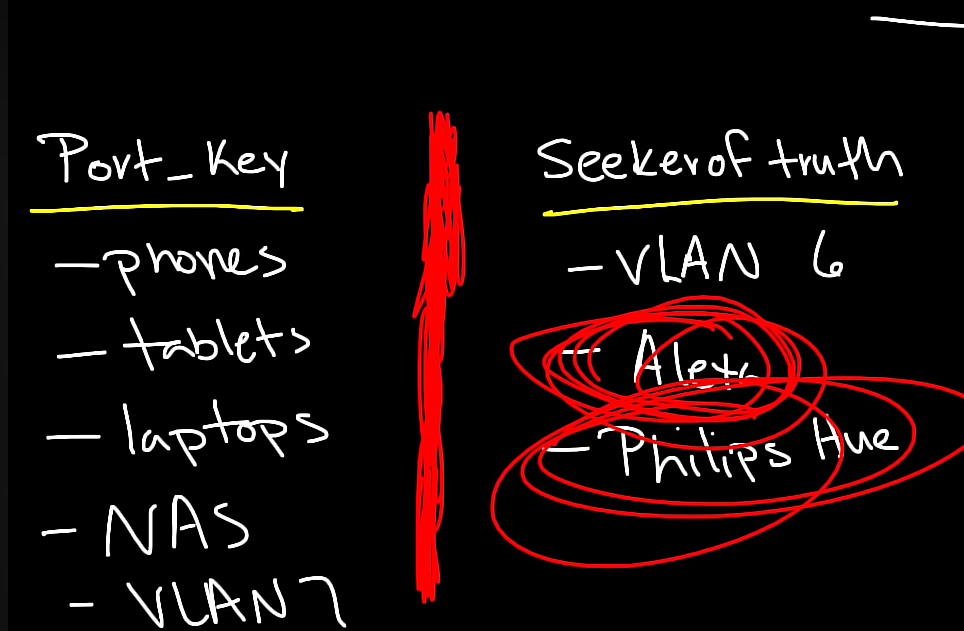 Port_Key
- phones
- tablets
- laptops
- NAS
- VLAN 7
Seeker of truth
- VLAN 6
- Alexa
- Philips Hue